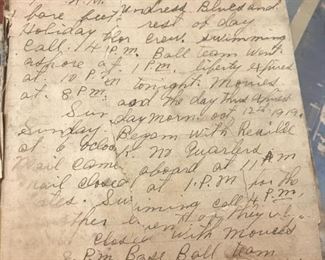 A.M.
bare feet undress Blues and
Holiday for crew swimming
Call. 4 P.M. Ball team went
ashore at 1 P.M. liberty expired
at 10 P. on tonight. Movies
at 8 P.M. and the day thus
Sunday Morn. Oct 12th 1919.
Sunday Began with Reveille
at 6 oclock no Quarters
Mail came aboard at 11 AM
mail closed at 1. P.M for the
Swimming call 4 P.M.
closed with movies
P.M Base Ball team